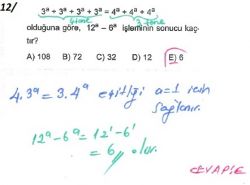 12/ 3ᵃ + 3ᵃ + 3ᵃ + 3ᵃ = 4ᵃ + 4ᵃ + 4ᵃ
4 tane 3 tane
olduğuna göre, 12ᵃ – 6ᵃ işleminin sonucu kaç-
tır?
A) 108 B) 72 C) 32 D) 12 E) 6
4.3ᵃ = 3.4ᵃ eşitliği a=1 için
sağlanır.
12ᵃ - 6ᵃ = 12¹ - 6¹
= 6 olur.
CEVAP:E